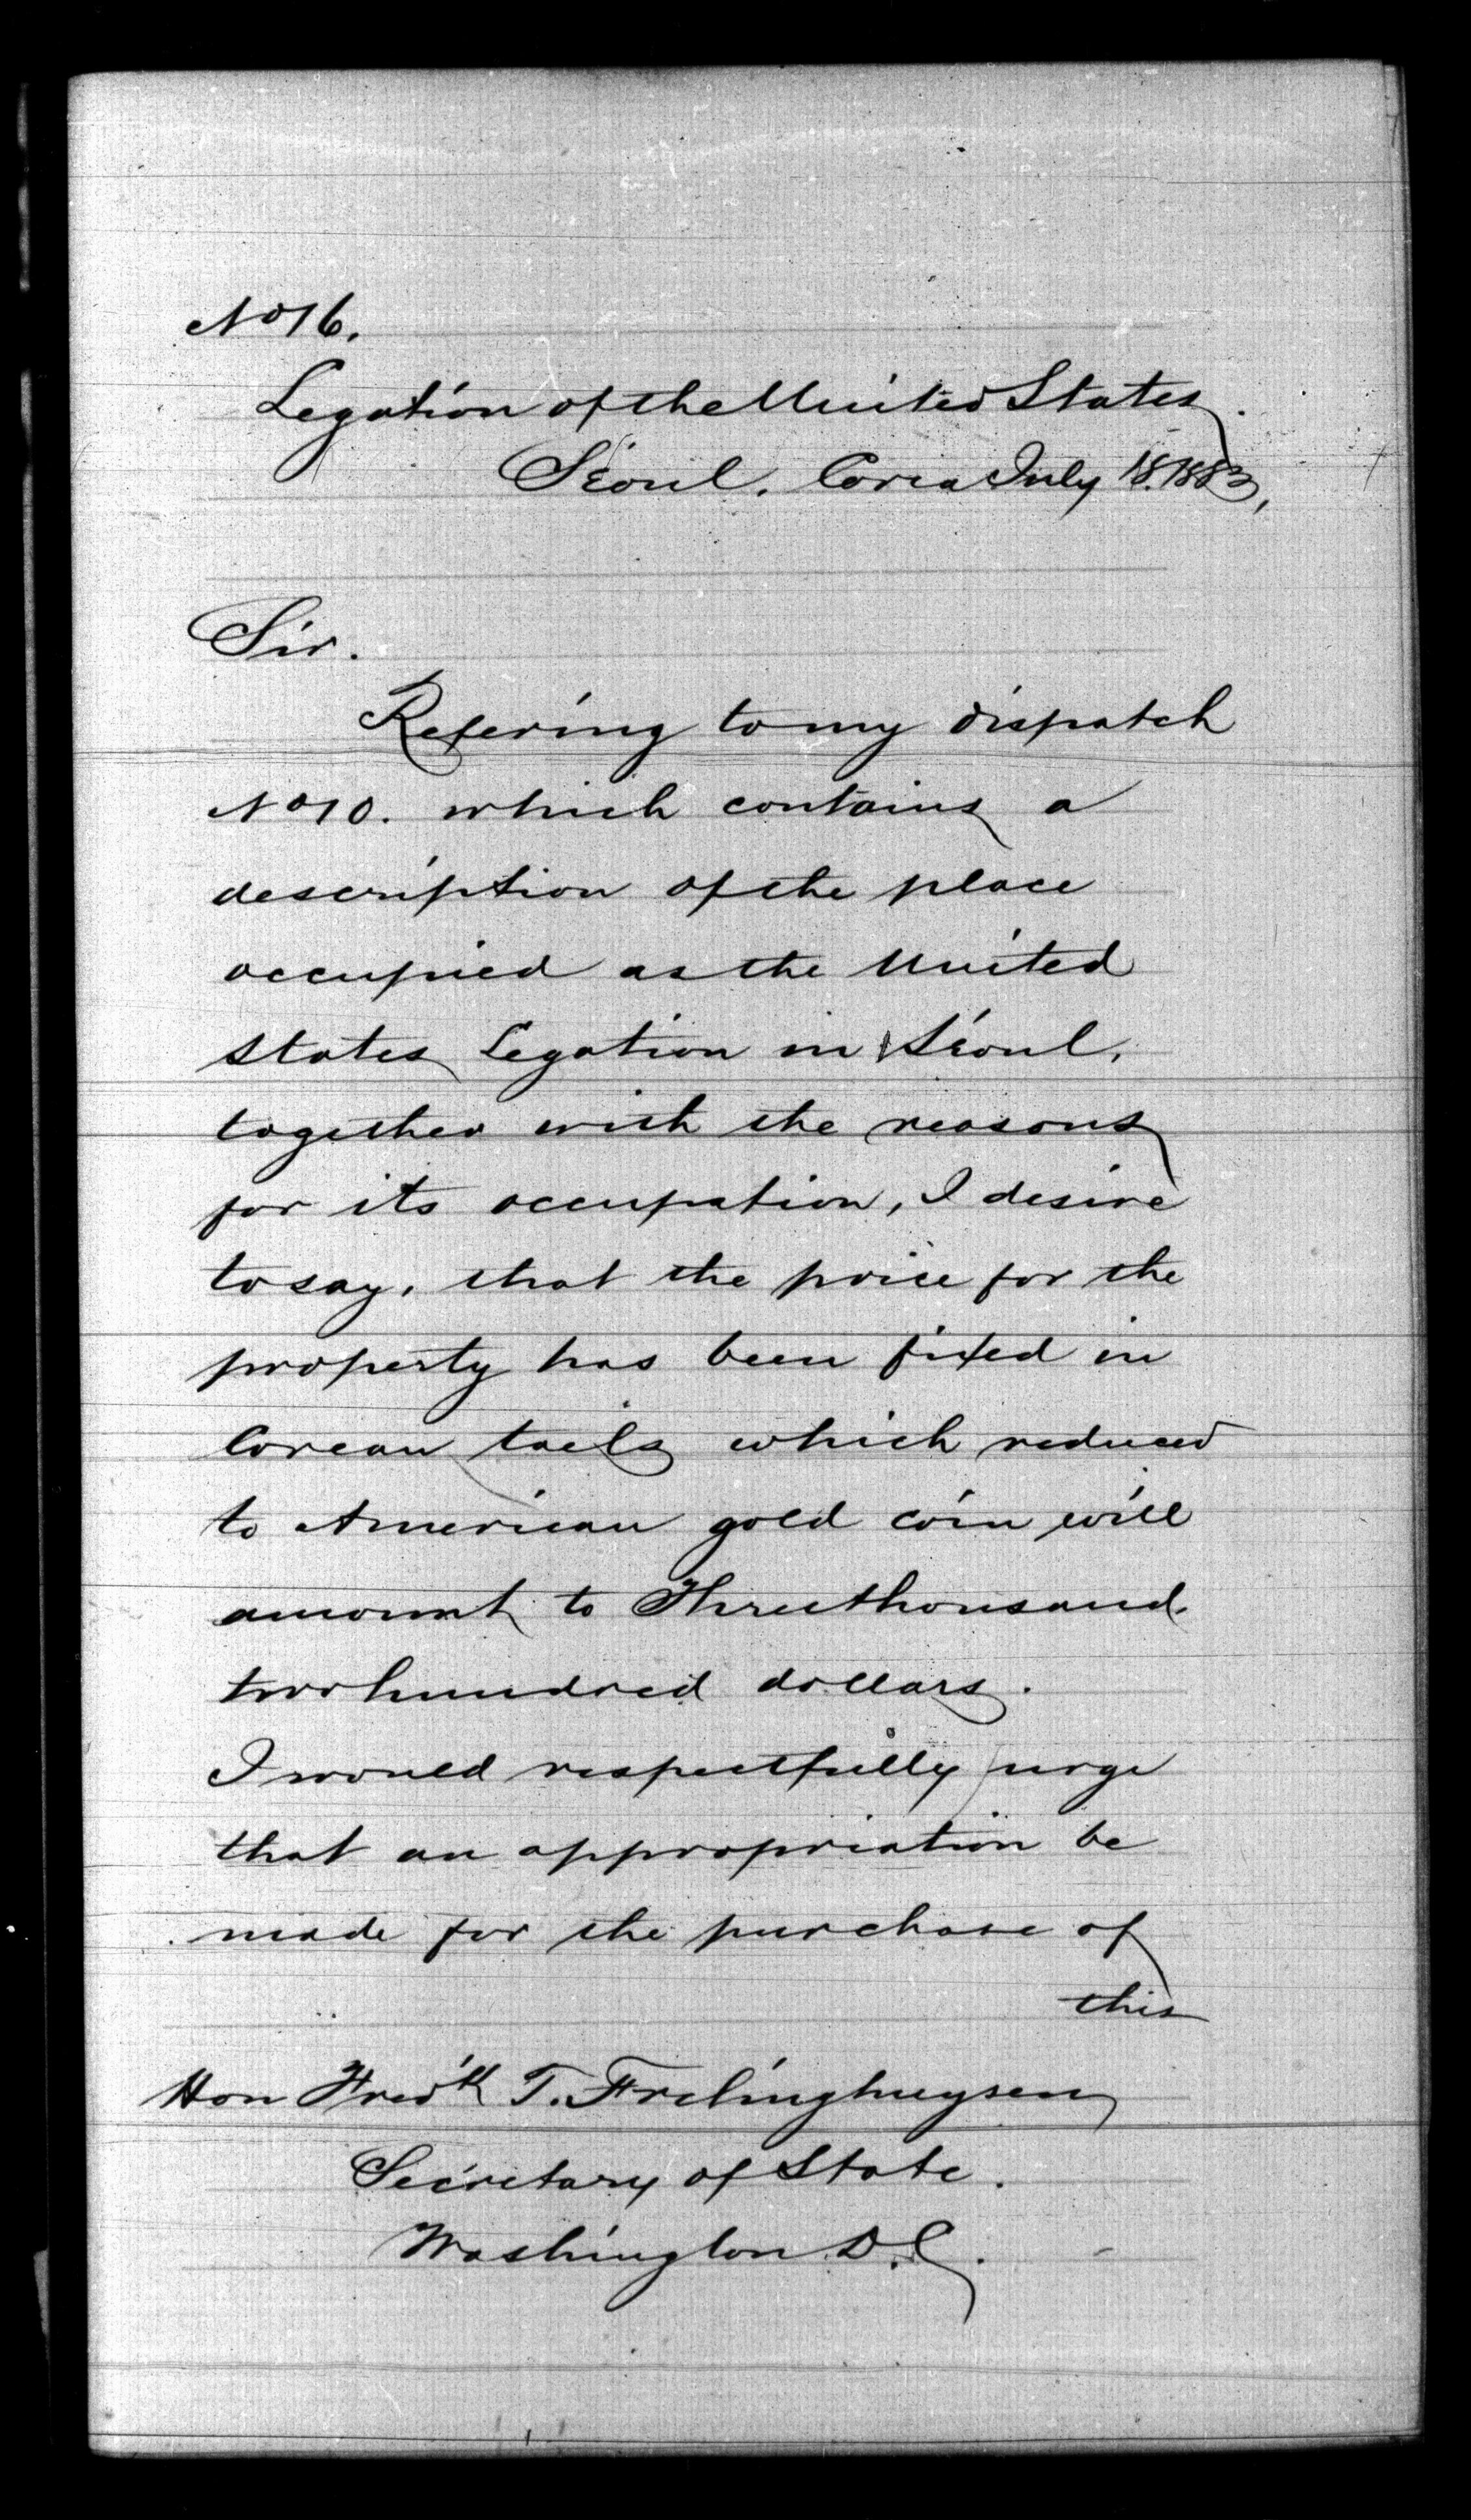 No 16.
Legation of the United States.
Séoul, Corea July 18. 1883,
Sir.
Refering to my dispatch
No 10. which contains a
description of the place
occupied as the United
States Legation in Séoul,
together with the reasons
for its occupation, I desire
to say, that the price for the
property has been fixed in
Corean taels which reduced
to American gold coin will
amount to Three thousand
two hundred dollars.
I would respectfully urge
that an appropriation be
made for the purchase of
this
Hon Fred'k T. Frelinghuysen
Secretary of State.
Washington D.C.